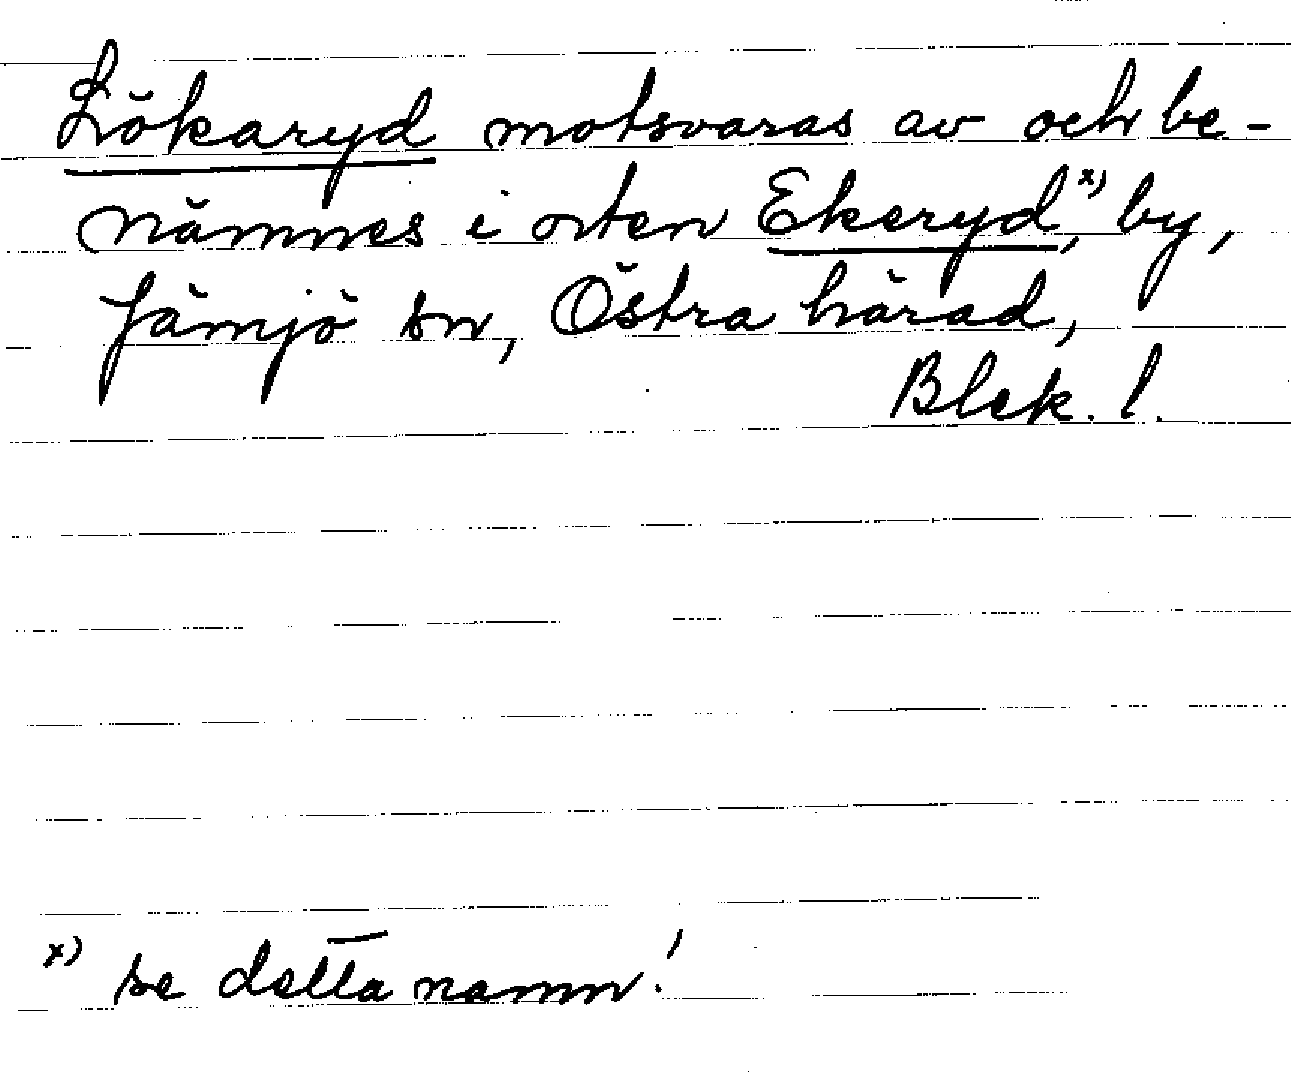 Lökaryd motsvaras av och be-
nämnes i orten Ekeryd,x) by,
Jämjö sn, Östra härad,
Blek. l.
x) se detta namn!